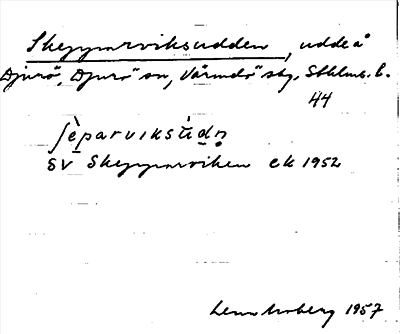 Skepparviksudden, udde å
Djurö, Djurö sn, Värmdö skg, Sthlms l.
44
ʃèparviksùdṇ
SV Skepparviken ek 1952
1957